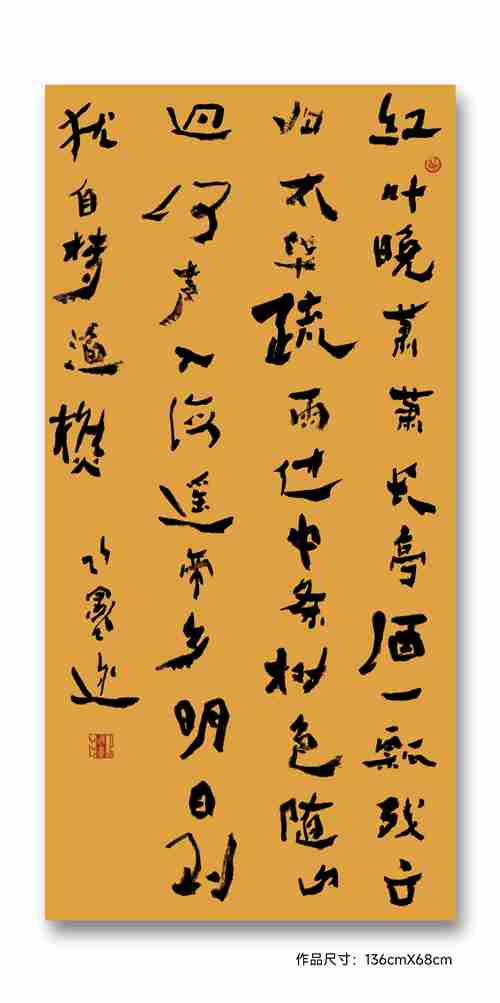 紅叶晚萧萧长亭酒一瓢残云
归太华疏雨过中条树色随山
迥河声入海遥帝乡明日到
犹自梦渔樵
作品尺寸：136cmX68cm